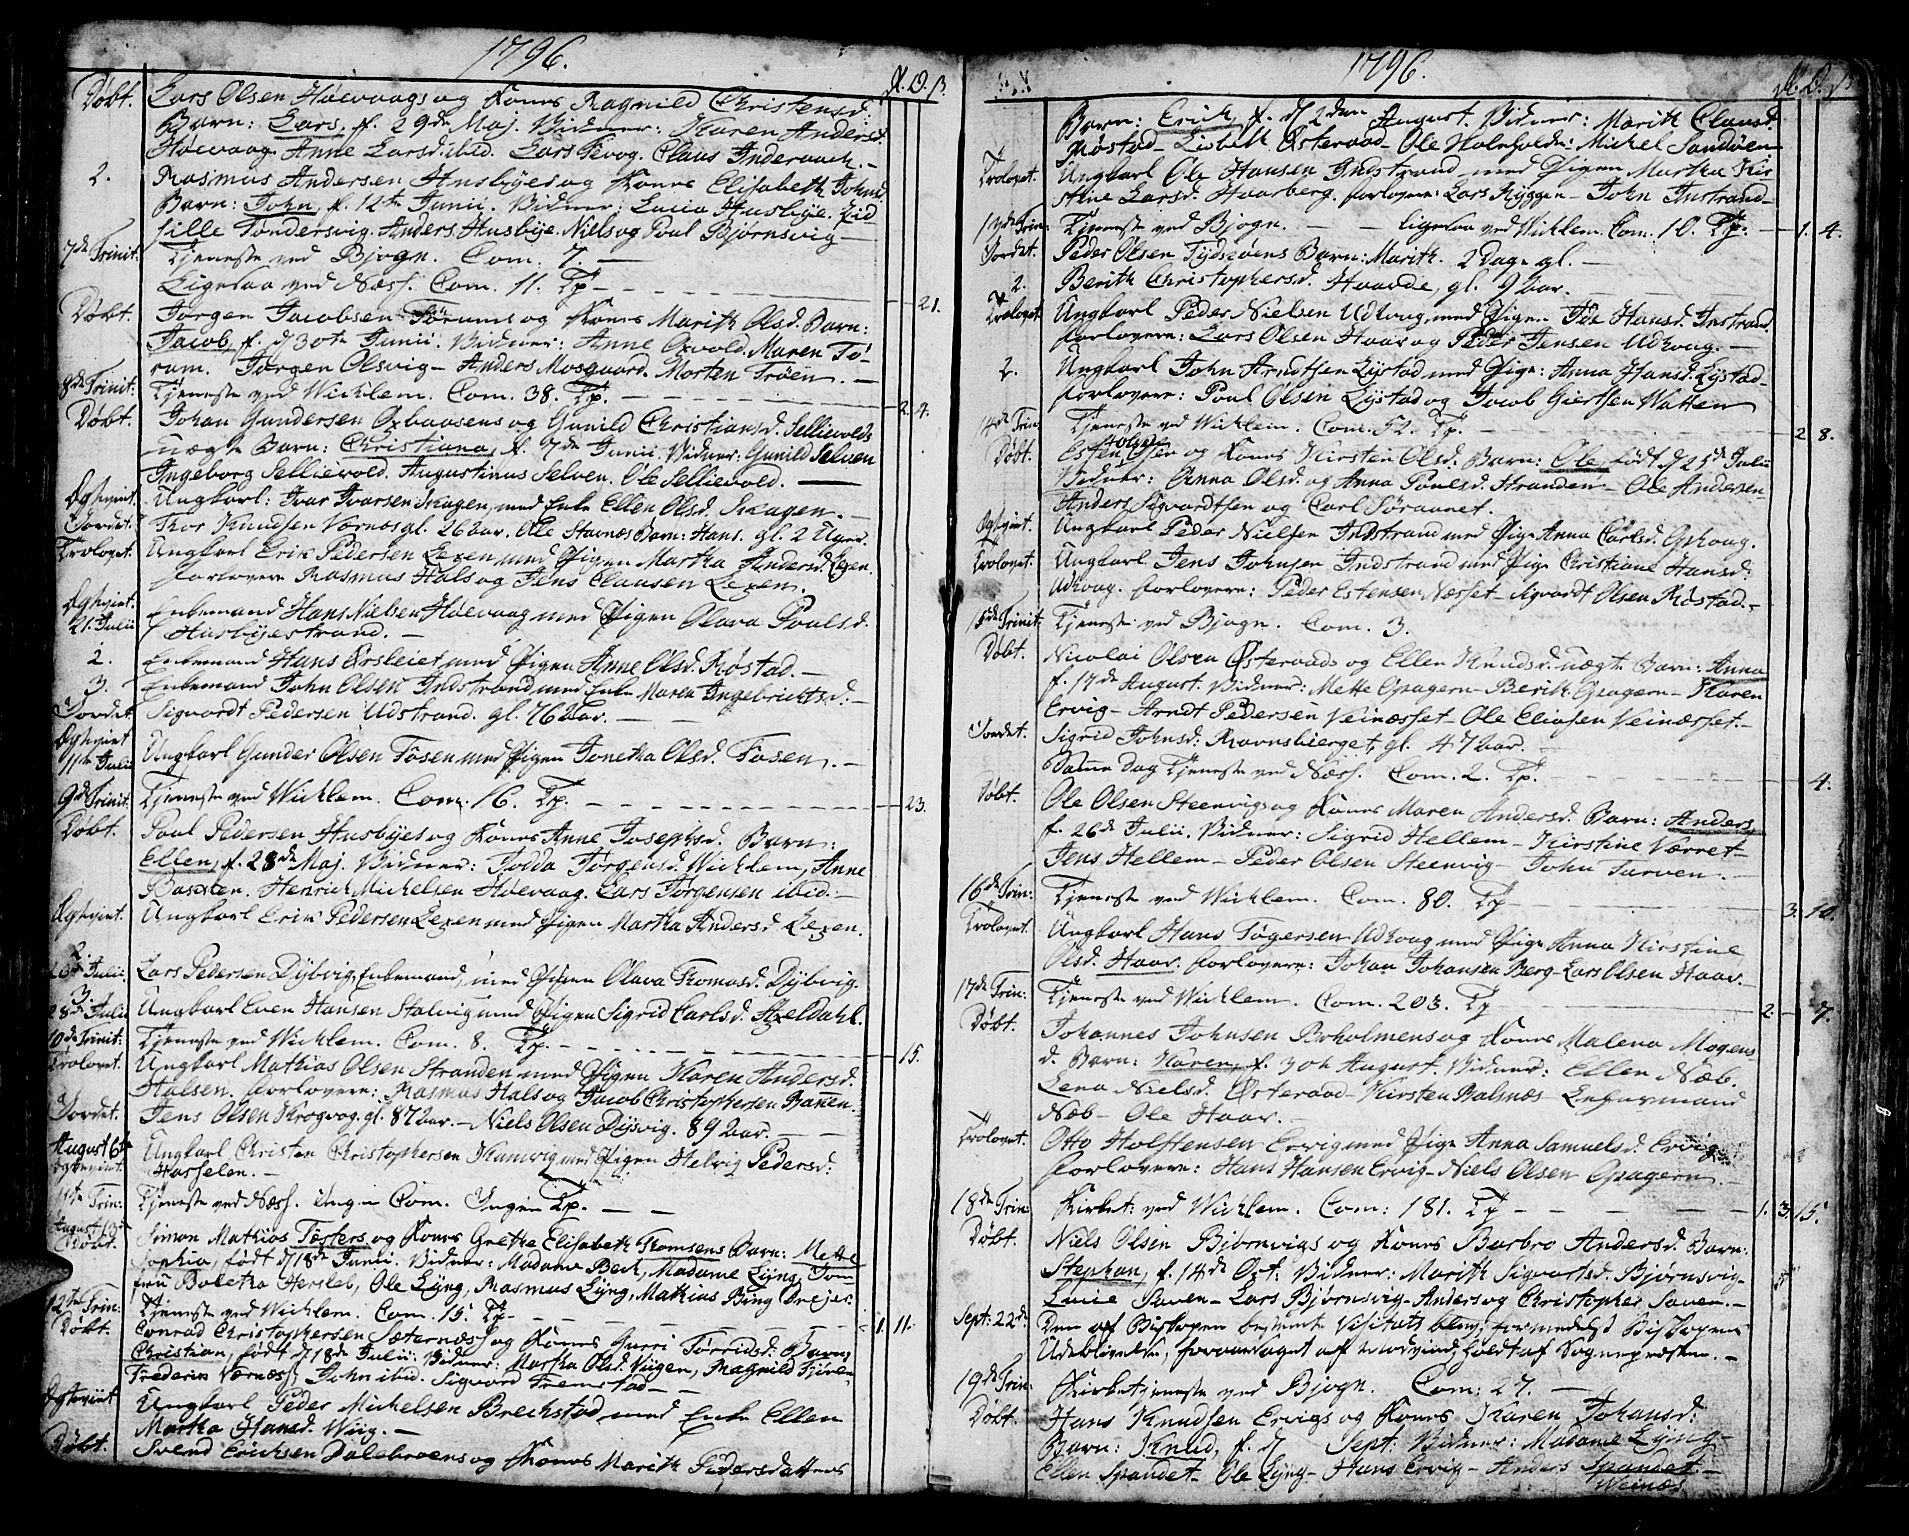 1796.
Døbt. Lars Olsen Høevaags og Kones Ragnild Christensd:
Barn: Lars, f. 29de Maj. Vidner: Karen Andersd.
Høevaag. Anne Larsd. ibid. Lars Claus
2. Rasmus Andersen Husbyes og Kones Elisabeth Johnsd.
Barn: John, f. 12te Junii. Vidner: Lucia Husbye. Zid
sille Tondersvig. Anders Husbye. Niels og Poul Bjørnsvig -
7de Trinit. Tjeneste ved Bjogn. Com. 7. -
Ligesaa ved Næss. Com. 11. Tp - 21.
Døbt. Jørgen Jacobsen Tørums og Kones Marith Olsd. Barn:
Jacob, f. d 30te Junii. Vidner: Anne Oxvold. Maren Tø-
rum. Jørgen Olsvig - Anders Mosgaard. Morten Trøen. -
8de Trinit. Tjeneste ved Wicklem. Com. 38. Tp. - 2. 4.
Døbt. Johan Gundersen Oxbaasens og Gunild Christiansd. Sellievolds
uægte Barn: Christiana, f. 7de Junii. Vidner: Gunild Selven
Ingeborg Sellievold. Augustinus Selven. Ole Sellievold. -
Ungkarl: Ivar Ivarsen Skagen, med Enke Ellen Olsd. Skagen. -
Jordet. Thor Knudsen Værnæs gl. 26 aar. Ole Stavnæs Barn: Hans. gl. 2 Uger.
Trolovet. Ungkarl Erik Pedersen Lexen med Pigen Martha Andersd. Lexen.
Forlovere Rasmus Hals og Jens Clausen Lexen.
21. Julii Enkemand Hans Nielsen Høevaag med Pigen Olava Poulsd.
Husbyestrand. -
2. Enkemand Hans Ørsleiet med Pigen Anne Olsd. Røstad. -
3. Enkemand John Olsen Indstrand med Enke Maren Ingebrichtsd: -
Jordet Sigvardt Pedersen Udstrand. gl. 76 aar. -
11te Julii Ungkarl Gunder Olsen Fosen med Pigen Jonetha Olsd. Fosen. -
9de Trinit. Tjeneste ved Wicklem. Com. 16. Tp. - 23.
Døbt. Poul Pedersen Husbyes og Kones Anne Josephsd. Barn:
Ellen, f. 28de Maj. Vidner: Todda Jørgensd. Wicklem, Anne
Henrich Michelsen Høevaag. Lars Jørgensen ibid: -
Ungkarl Erik Pedersen Lexen med Pigen Martha Andersd Lexen.
2. Julii Lars Pedersen Dybvig, Enkemand, med Pigen Olava Thomasd. Dybvig.
3. 28de Julii Ungkarl Even Hansen Stalvig med Pigen Sigrid Carlsd. Axeldahl.
10de Trinit: Tjeneste ved Wicklem. Com. 8. Tp. - 15.
Trolovet. Ungkarl Mathias Olsen Stranden med Pigen Karen Andersd.
Halsen. Forlovere: Rasmus Hals og Jacob Christophersen
Jordet. Jens Olsen Krogvog. gl. 87 aar. - Niels Olsen Dysvig. 89 aar. -
August 6te Ungkarl Christen Christophersen Kamvig med Pigen Helvig Pedersd:
Hasselen. -
11te Trin: Tjeneste ved Næss. Ingen Com. Ingen Tp. -
August 13de Døbt. Simon Mathias Fosters og Kones Grethe Elisabeth Thomsens Barn: Mette
Sophia, født d 18de Junii. Vidner: Madame Bech, Madame Lyng, Jom
fru Boletha Hersleb, Ole Lyng, Rasmus Lyng, Mathias Bing
12te Trin: Tjeneste ved Wicklem. Com. 15. Tp - 1. 11.
Døbt. Conrad Christophersen Sæternæss og Kones Gurri Torridsd: Barn,
Christian, født d 18de Julii: Vidner: Martha Olsd. Viigen, Ragnild
Frederik Værnæs, John ibid. Sigvard Fremstad -
Ungkarl Peder Michelsen Brechstad, med Enke Ellen
Martha Hansd. Wiig. -
Døbt. Svend Erichsen Dalebroens og Kones Marith Pedersdatters
1796.
Barn: Erich, f. d 2den August. Vidner: Marith Clausd.
Røstad - Lisbeth Østeraad - Ole Michel Sandøen
Trolovet. Ungkarl Ole Hansen Indstrand med Pigen Martha Kir-
stine Larsd. Haarberg. Forlovere: Lars Ryggen - John Instrand -
Trin: Tjeneste ved Bjogn. - - ligesaa ved Wicklem. Com. 10. Tp. - 1. 4.
Jordet. Peder Olsen Tydsøens Barn: Marith. 2 Dage gl. -
2. Berith Christophersd. Haande, gl. 9 aar. -
Trolovet Ungkarl Peder Nielsen Udhaug med Pigen Ide Hansd. Instrand.
Forlovere: Lars Olsen Haar og Peder Jensen Udhoug. -
2. Ungkarl John Arndtsen Lystad med Pige: Anna Hansd. Lystad -
Forlovere: Poul Olsen Lystad og Jacob Giertsen Watten
14de Trin Tjeneste ved Wicklem. Com. 52. Tp. - 2. 8.
Døbt. Esten Olsen og Kones Kirsten Olsd. Barn: Ole født d 25de Julii
Vidner: Anna Olsd. og Anna Poulsd. Stranden - Ole Andersen -
Anders Sigvardtsen og Carl Søraunet.
Ungkarl Peder Nielsen Indstrand med Pige Anna Carlsd. Ophoug.
Trolovet. Ungkarl Jens Johnsen Indstrand med Pige Christiane Hansd:
Udhoug. Forlovere: Peder Estensen Næsset - Sigvardt Olsen Røstad. -
15de Trinit. Tjeneste ved Bjogn. Com. 3.
Døbt. Nicolai Olsen Østeraads og Ellen Knudsd. uægte Barn: Anna
f. 17de August. Vidner: Mette Opagern - Berith Opagern - Karen
Ervig - Arndt Pedersen Veinæsset - Ole Eliasen Veinæsset. -
Jordet. Sigrid Johnsd: Ravnsbierget, gl. 47 aar. -
Samme Dag Tjeneste ved Næss. Com. 2. Tp. - 4.
Døbt. Ole Olsen Steenvigs og Kones Maren Andersd. Barn: Anders
f. 26de Julii. Vidner: Sigrid Hellem - Kirstine Værret -
Jens Hellem - Peder Olsen Steenvig - John Turven. -
16de Trin: Tjeneste ved Wicklem. Com. 80. Tp - 3. 10.
Trolovet. Ungkarl Hans Tøgersen Udhoug med Pige Anna Kirstine
Olsd. Haar. Forlovere: Johan Johansen Berg - Lars Olsen Haar.
17de Trin: Tjeneste ved Wicklem. Com. 203. Tp 2. - 7.
Døbt. Johannes Johnsen Brholmens og Kones Malena Mogens
d. Barn: Karen, f. 30te August. Vidner: Ellen Næb.
Lena Nielsd. Østeraad - Kirsten Balsnæs -
Næb - Ole Haar. -
Trolovet. Otto Holstensen Ervig med Pige Anna Samuelsd. Ervig
Forlovere: Hans Hansen Ervig - Niels Olsen Opagern. -
18de Trin: Kirket: ved Wicklem. Com: 181. Tp - 1. 3. 15.
Døbt. Niels Olsen Bjørnvigs og Kones Barbro Andersd. Barn:
Stephan, f. 14de Vidner: Marith Sigvartsd. Bjørnsvig -
Lucie - Lars Bjørnsvig - Anders og Christopher -
Sept: 22de Den af Biskopen bestemte Visitats blev, formedelst Biskopens
Udeblivelse, foraarsaget af Modvind, holdt af Sognepræsten. -
19de Trin: Kirketjeneste ved Bjogn. Com: 27. -
Døbt. Hans Knudsen Ervigs og Kones Karen Johansd:
Barn: Knud, f. d Sept: Vidner: Madame Lyng -
Ellen Spandet - Ole Lyng - Hans Ervig - Anders Spandet. -
Weinæs